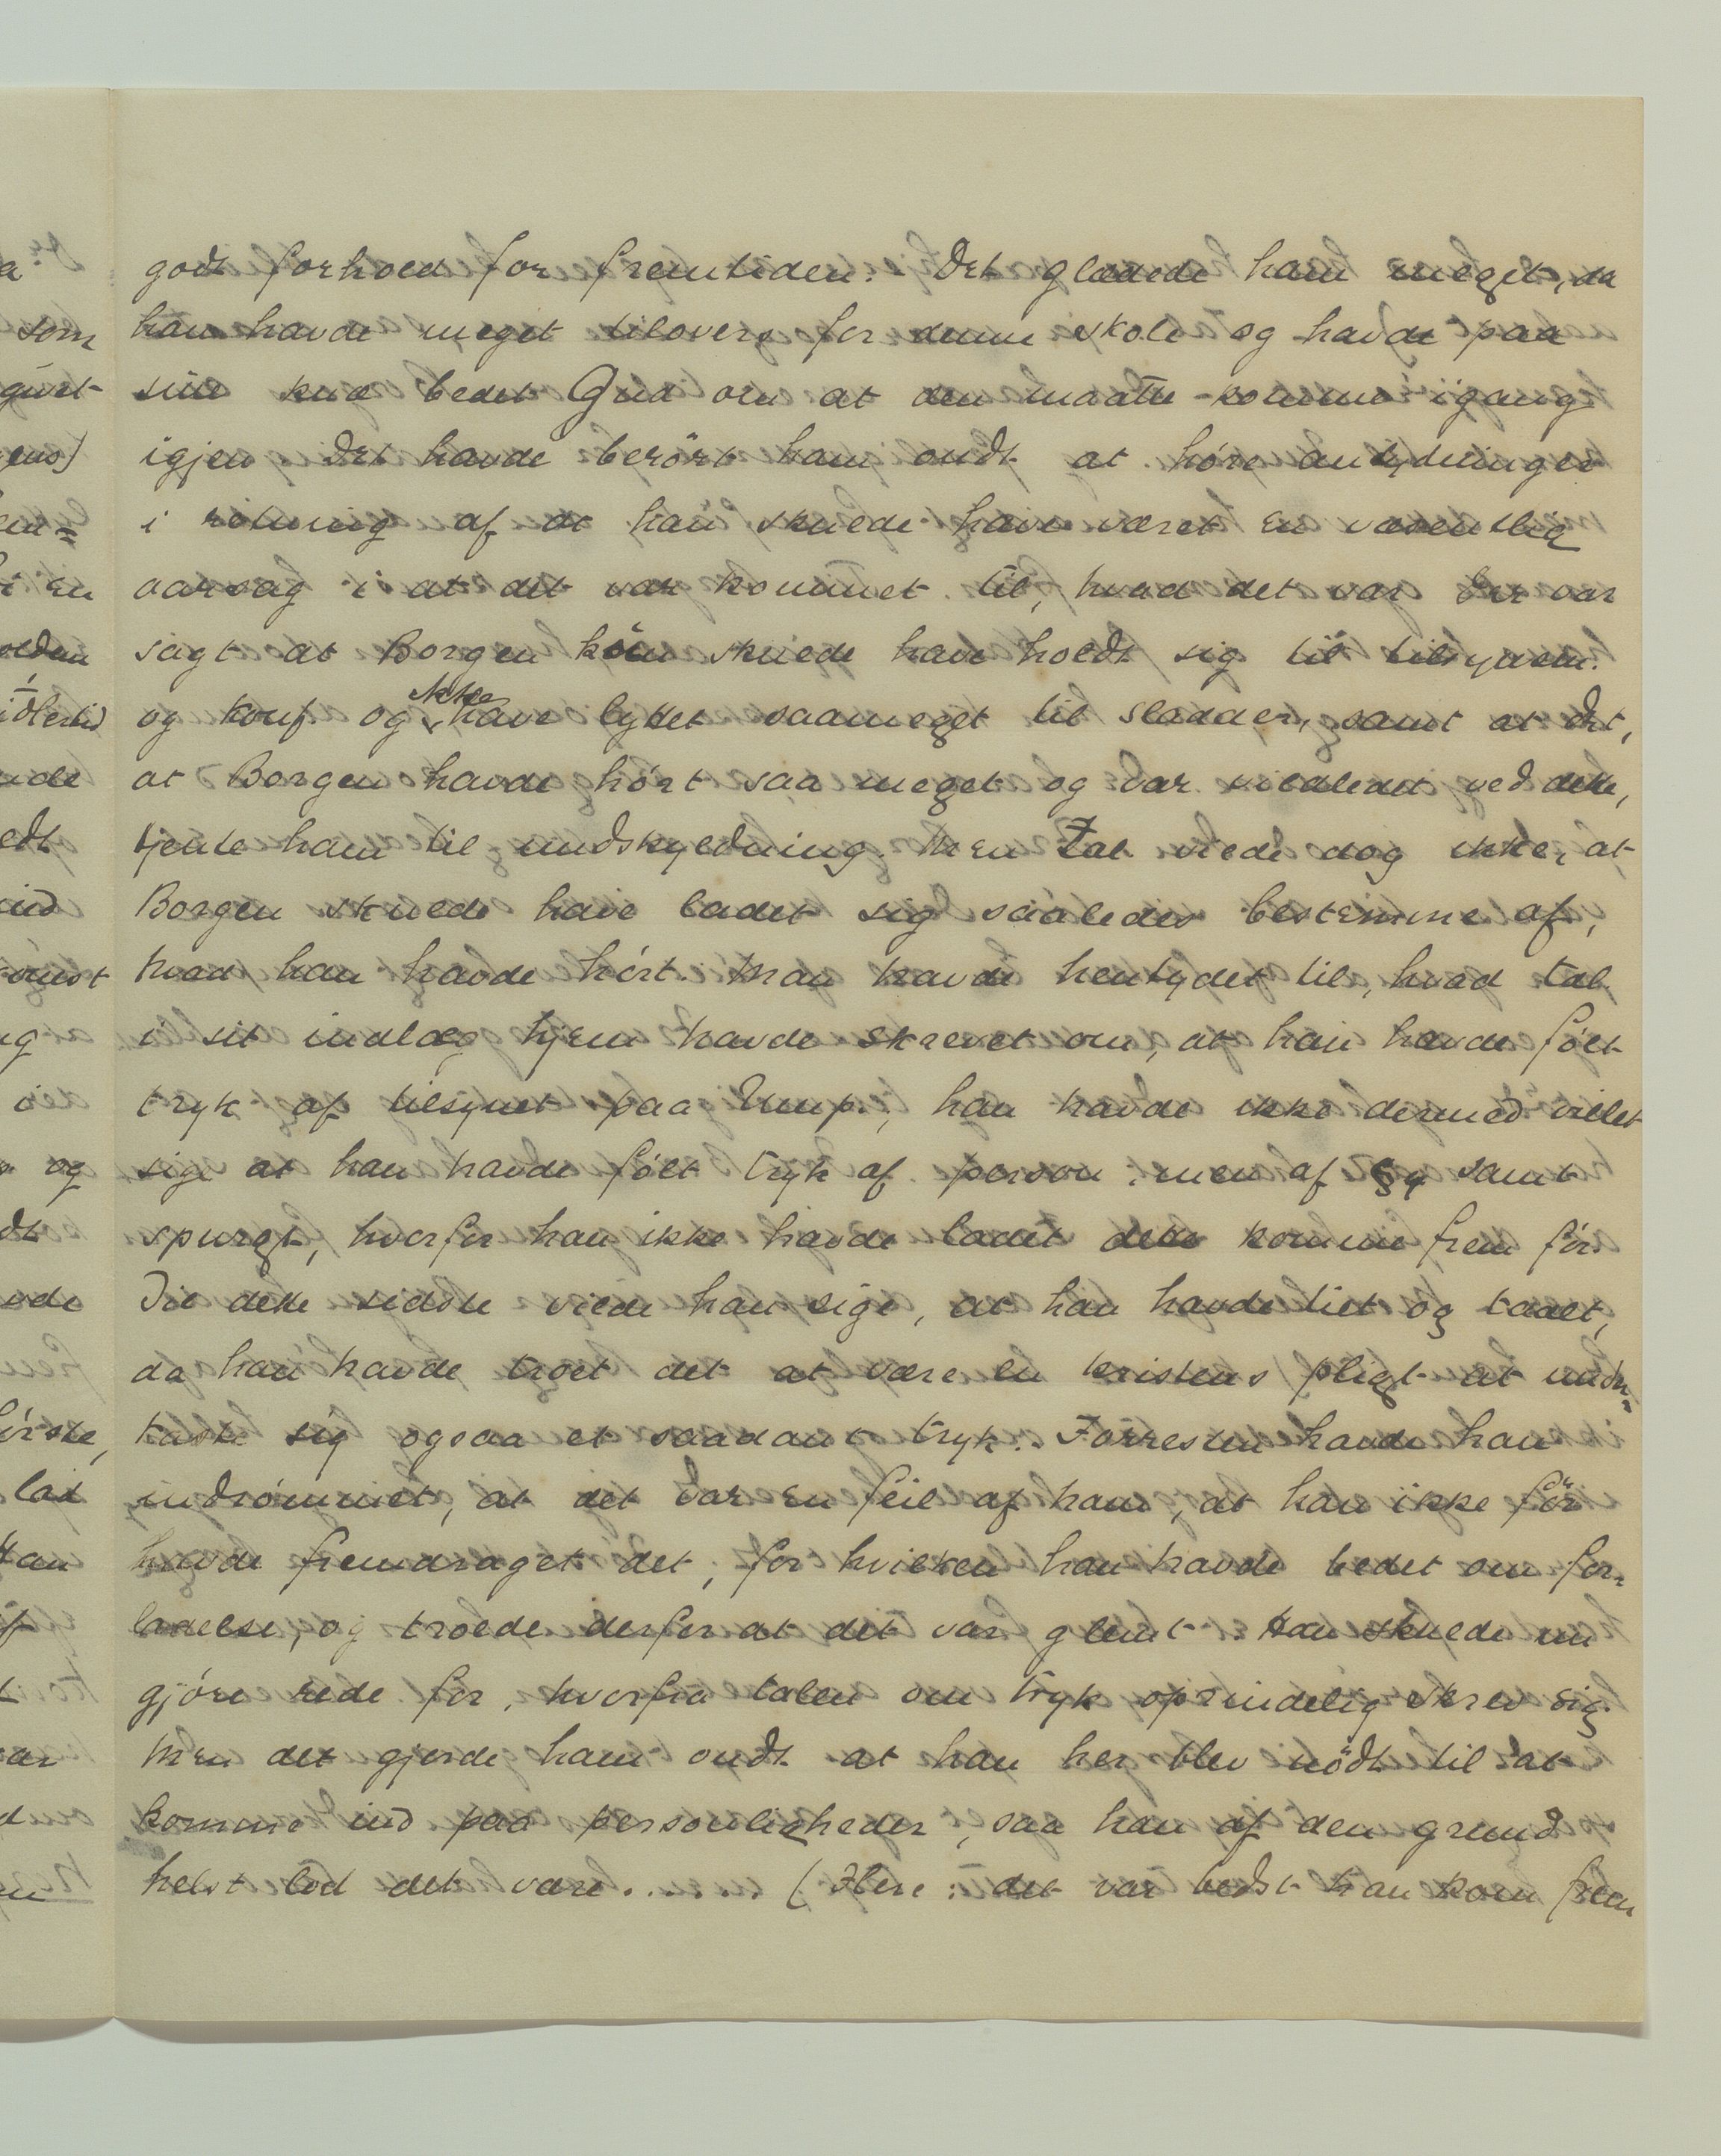 godt forhold for fremtiden. Det glædede ham meget, da
han havde meget tilovers for denne skole og havde paa
sine knæ bedet Gud om at den maatte komme igang
igjen. Det havde berört ham ondt at höre antydninger
i retning af at han skulde have været en væsentlig
aarsag i at det var kommet til, hvad det var. Der var
sagt at Borgen kön skulde have holdt sig til tilsynem.
og konf. og ikke have lyttet saameget til sladder, samt at det,
at Borgen havde hört saa meget og var vildledet ved dette,
tjente ham til undskyldning. Men Tal. vilde dog ikke, at
Borgen skulde have ladet sig saaledes bestemme af,
hvad han havde hört. Man havde hentydet til, hvad Tal.
i sit indlæg hjem havde skrevet om, at han havde fölt
tryk af tilsynet paa Ump., han havde ikke dermed villet
sige at han havde fölt tryk af person: men af §9 samt
spurgt, hvorfor han ikke havde ladet dette komme frem för.
Til dette sidste vilde han sige, at han havde tiet og taalt,
da han havde troet det at være en kristens pligt at under=
kaste sig ogsaa et saadant tryk. Forresten havde han
indrömmet, at det var en feil af ham, at han ikke för
havde fremdraget det, for hvilken han havde bedet om for=
ladelse, og troede derfor at det var glemt. Han skulde nu
gjöre rede for, hvorfra talen om tryk oprindelig skrev sig.
Men det gjorde ham ondt at han her blev nödt til at
komme ind paa personligheder, saa han af den grund
helst lod det være. .... (Flere: det var bedst han kom frem